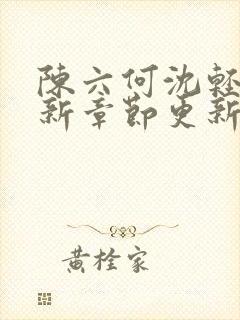 陳六何沈輕
新章節更新
黃栓家